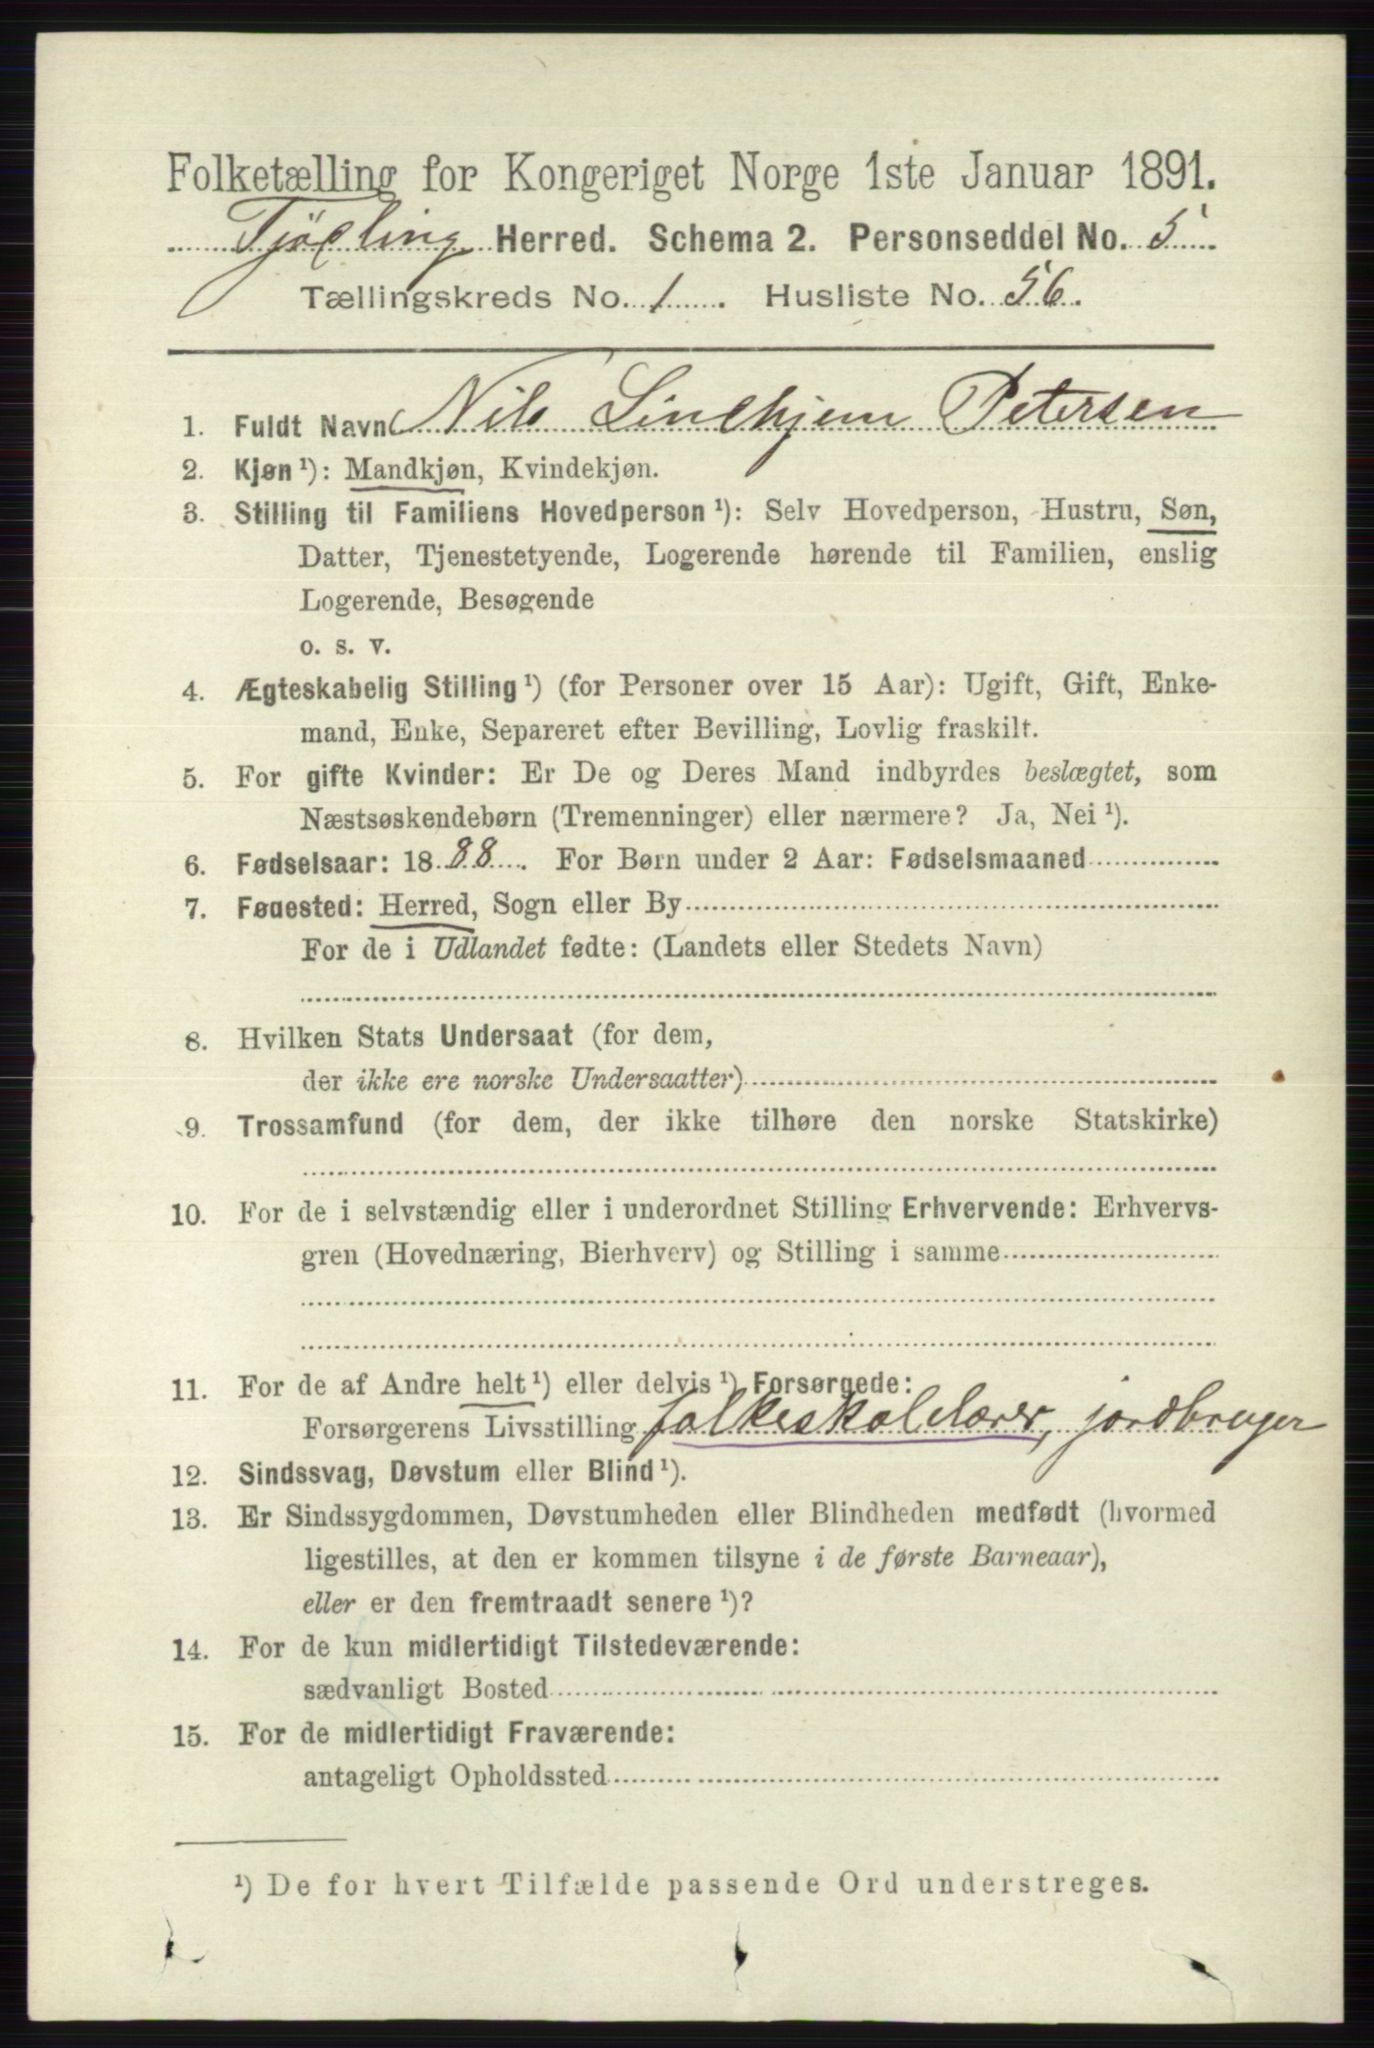 Folketælling for Kongeriget Norge 1ste Januar 1891.
Tjødling Herred. Schema 2. Personseddel No. 5
Tællingskreds No. 1. Husliste No. 56.
1. Fuldt Navn Nils Lindhjem Petersen
2. Kjøn ¹): Mandkjøn, Kvindekjøn.
3. Stilling til Familiens Hovedperson ¹): Selv Hovedperson, Hustru, Søn,
Datter, Tjenestetyende, Logerende hørende til Familien, enslig
Logerende, Besøgende
o. s. v.
4. Ægteskabelig Stilling ¹) (for Personer over 15 Aar): Ugift, Gift, Enke-
mand, Enke, Separeret efter Bevilling, Lovlig fraskilt.
5. For gifte Kvinder: Er De og Deres Mand indbyrdes beslægtet, som
Næstsøskendebørn (Tremenninger) eller nærmere? Ja, Nei ¹).
6. Fødselsaar: 1888. For Børn under 2 Aar: Fødselsmaaned
7. Fødested: Herred, Sogn eller By
For de i Udlandet fødte: (Landets eller Stedets Navn)
8. Hvilken Stats Undersaat (for dem,
der ikke ere norske Undersaatter)
9. Trossamfund (for dem, der ikke tilhøre den norske Statskirke)
10. For de i selvstændig eller i underordnet Stilling Erhvervende: Erhvervs-
gren (Hovednæring, Bierhverv) og Stilling i samme
11. For de af Andre helt ¹) eller delvis ¹) Forsørgede:
Forsørgerens Livsstilling folkeskolelærer, jordbruger
12. Sindssvag, Døvstum eller Blind ¹).
13. Er Sindssygdommen, Døvstumheden eller Blindheden medfødt (hvormed
ligestilles, at den er kommen tilsyne i de første Barneaar),
eller er den fremtraadt senere ¹)?
14. For de kun midlertidigt Tilstedeværende:
sædvanligt Bosted
15. For de midlertidigt Fraværende:
antageligt Opholdssted
¹) De for hvert Tilfælde passende Ord understreges.